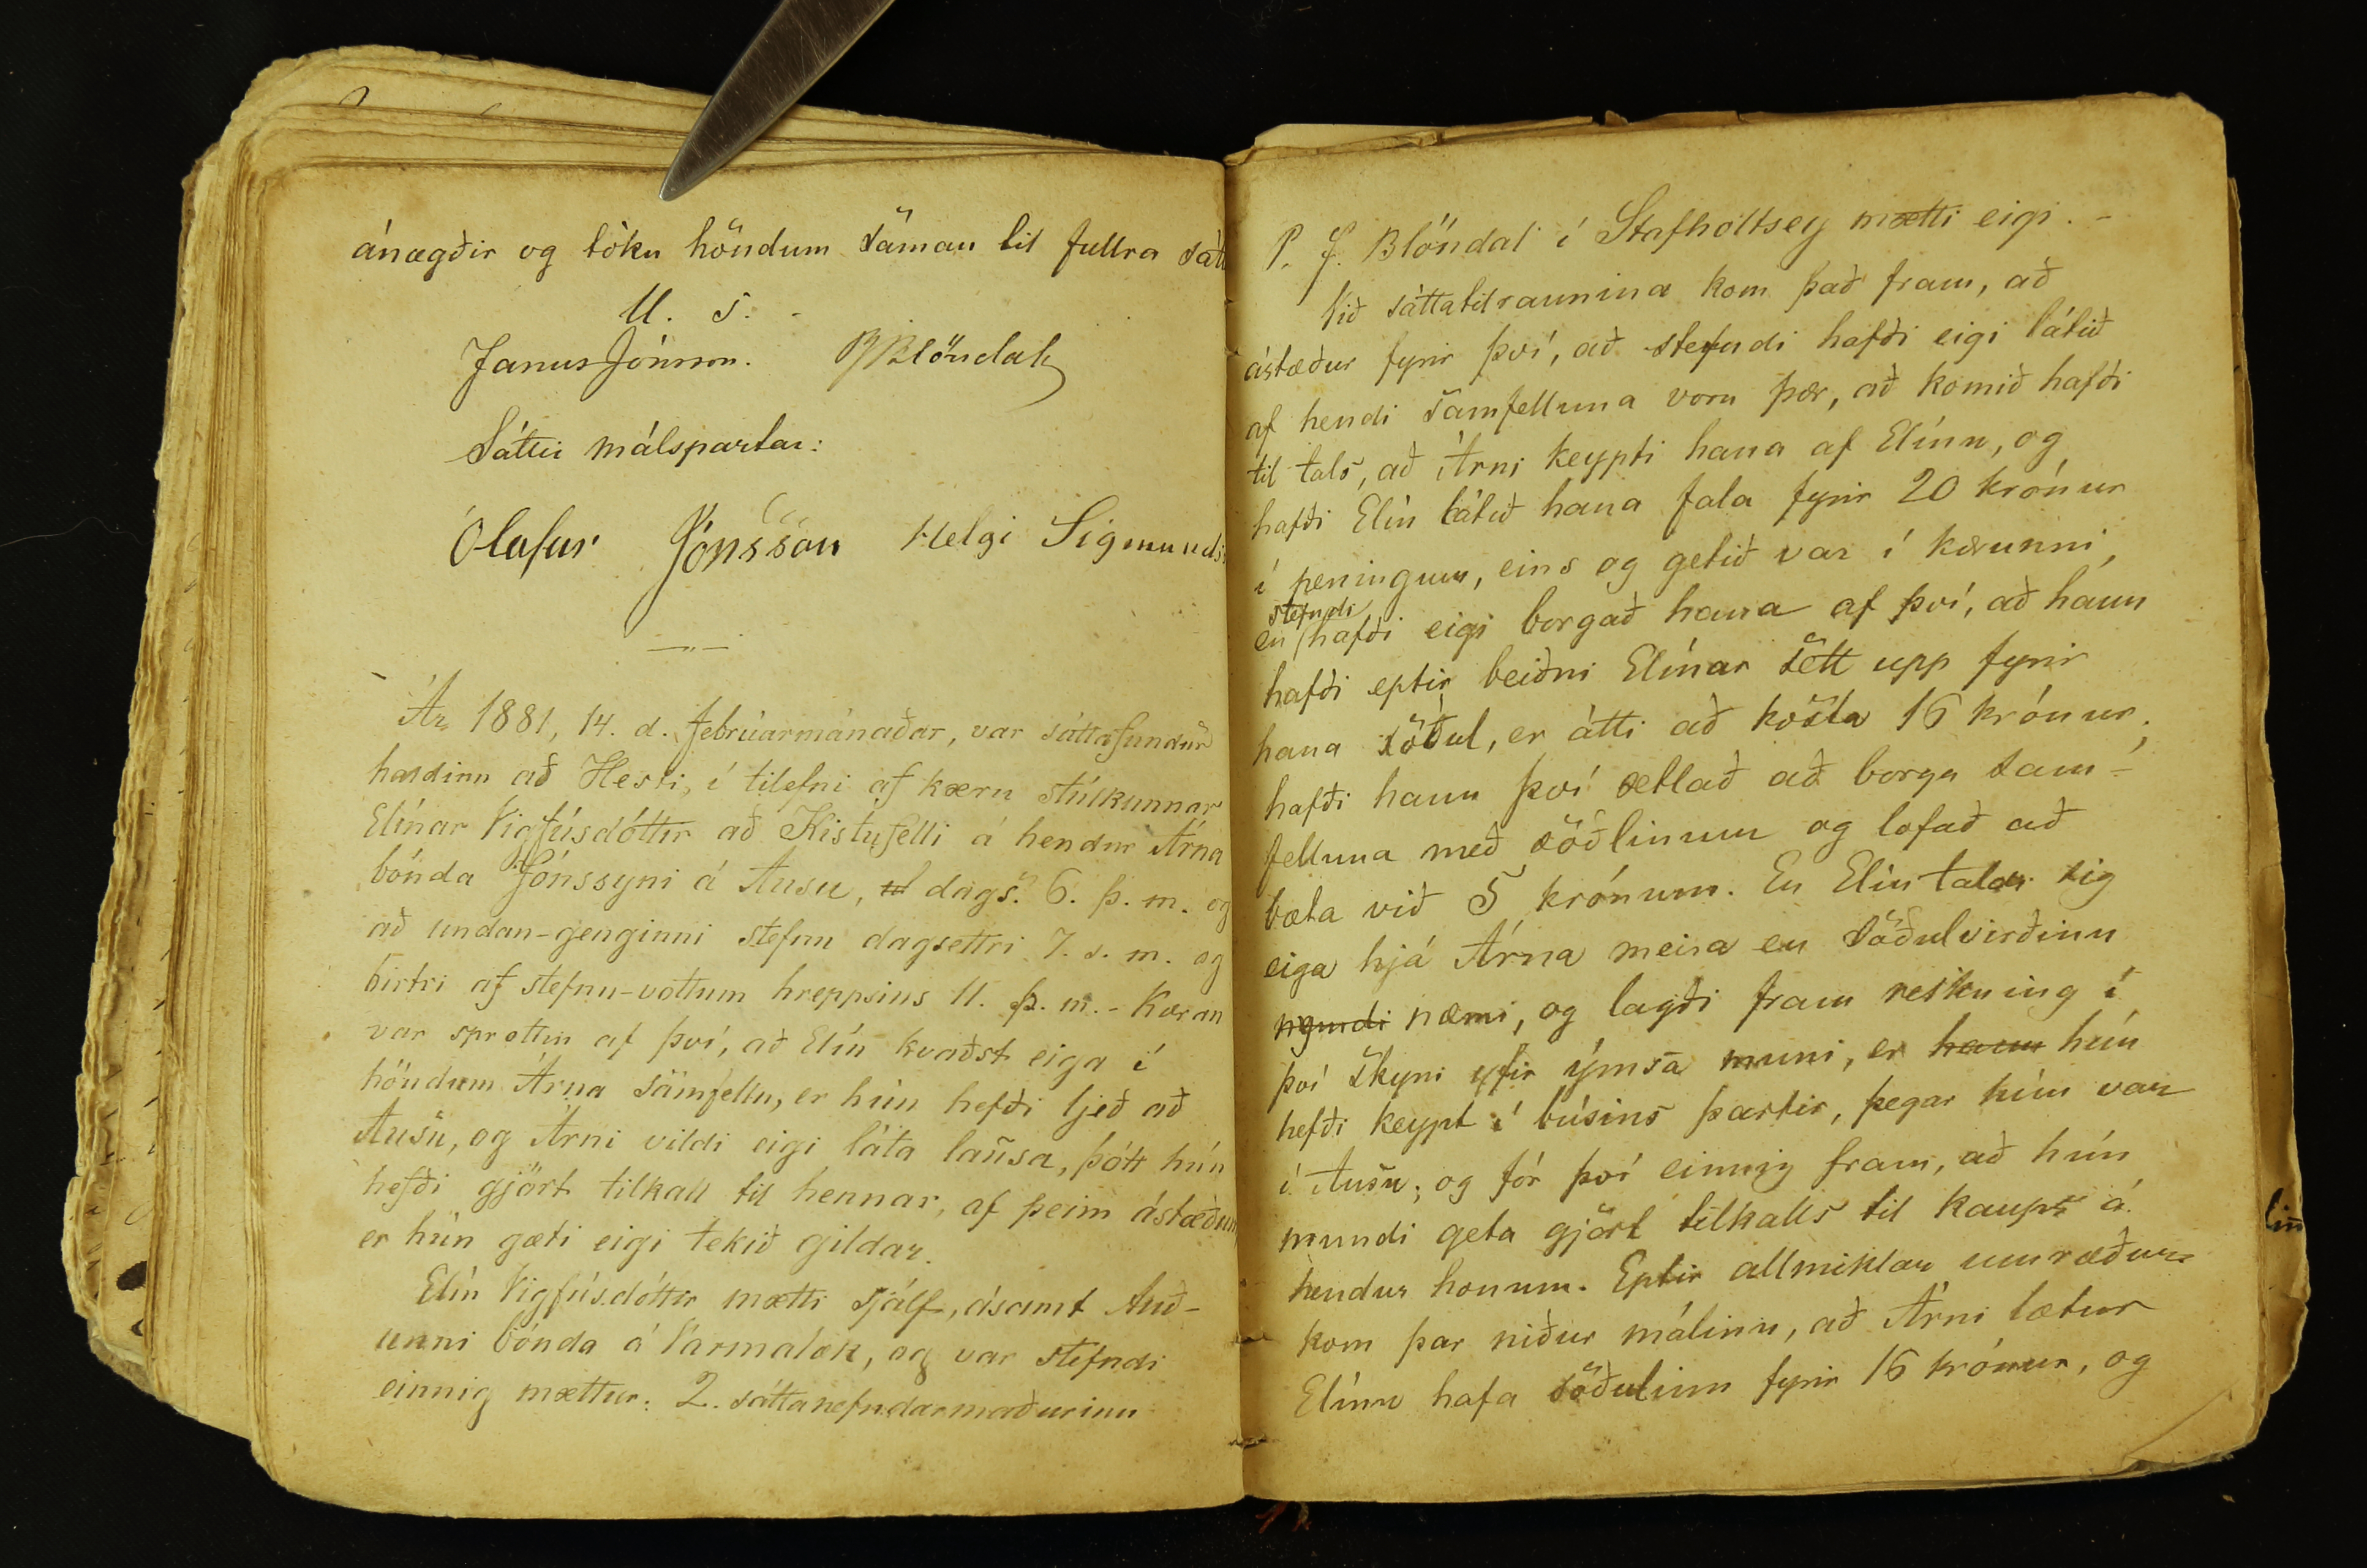 ánægðir og tóku höndum saman til fullra sátt
U. s.
Janus Jónsson. PBlöndal
Sáttir málspartar:
Ólafur Jónsson Helgi Sigmunds
Ár 1881, 14. d. febrúarmánaðar, var sáttafundur
haldinn að Hesti, í tilefni af kæru stúlkunnar
Elínar Vigfúsdóttir að Kistufelli á hendur Árna
bónda Jónssyni á Ausu, dags. 6. þ. m. og
að undan-genginni stefnu dagsettri 7. s. m. og
birtri af stefnu-vottum hreppsins 11. þ. m. - Kæran
var sprottin af því, að Elín kvaðst eiga í
höndum Árna samfellu, er hún hefði ljeð að
Ausu, og Árni vildi eigi láta lausa, þótt hún
hefði gjört tilkall til hennar, af þeim ástæðum,
er hún gæti eigi tekið gildar.
Elín Vigfúsdóttir mætti sjálf, ásamt Auð-
unni bónda á Varmalæk, og var stefndi
einnig mættur. 2. sáttanefndarmaðurinn
P. J. Blöndal í Stafholtsey mætti eigi. -
Við sáttatilraunina kom það fram, að
ástæður fyrir því, að stefndi hafði eigi látið
af hendi samfelluna voru þær, að komið hafði
til tals, að Árni keypti hana af Elínu, og
hafði Elín látið hana fala fyrir 20 krónur
í peningum, eins og getið var í kærunni,
stefndi
en hafði eigi borgað hana af því, að hann
hafði eptir beiðni Elínar sett upp fyrir
hana söðul, er átti að kosta 16 krónur;
hafði hann því ætlað að borga sam-
felluna með söðlinum og lofað að
bæta við 5 krónum. En Elín taldi sig
eiga hjá Árna meira en söðulvirðinu
myndi næmi, og lagði fram reikning í
því skyni yfir ýmsa muni, er hann hún
hefði keypt í búsins þarfir, þegar hún var
í Ausu; og fór því einnig fram, að hún
mundi geta gjört tilkalls til kaups á
hendur honum. Eptir allmiklar umræður
kom þar niður málinu, að Árni lætur
Elínu hafa söðulinn fyrir 16 krónur, og